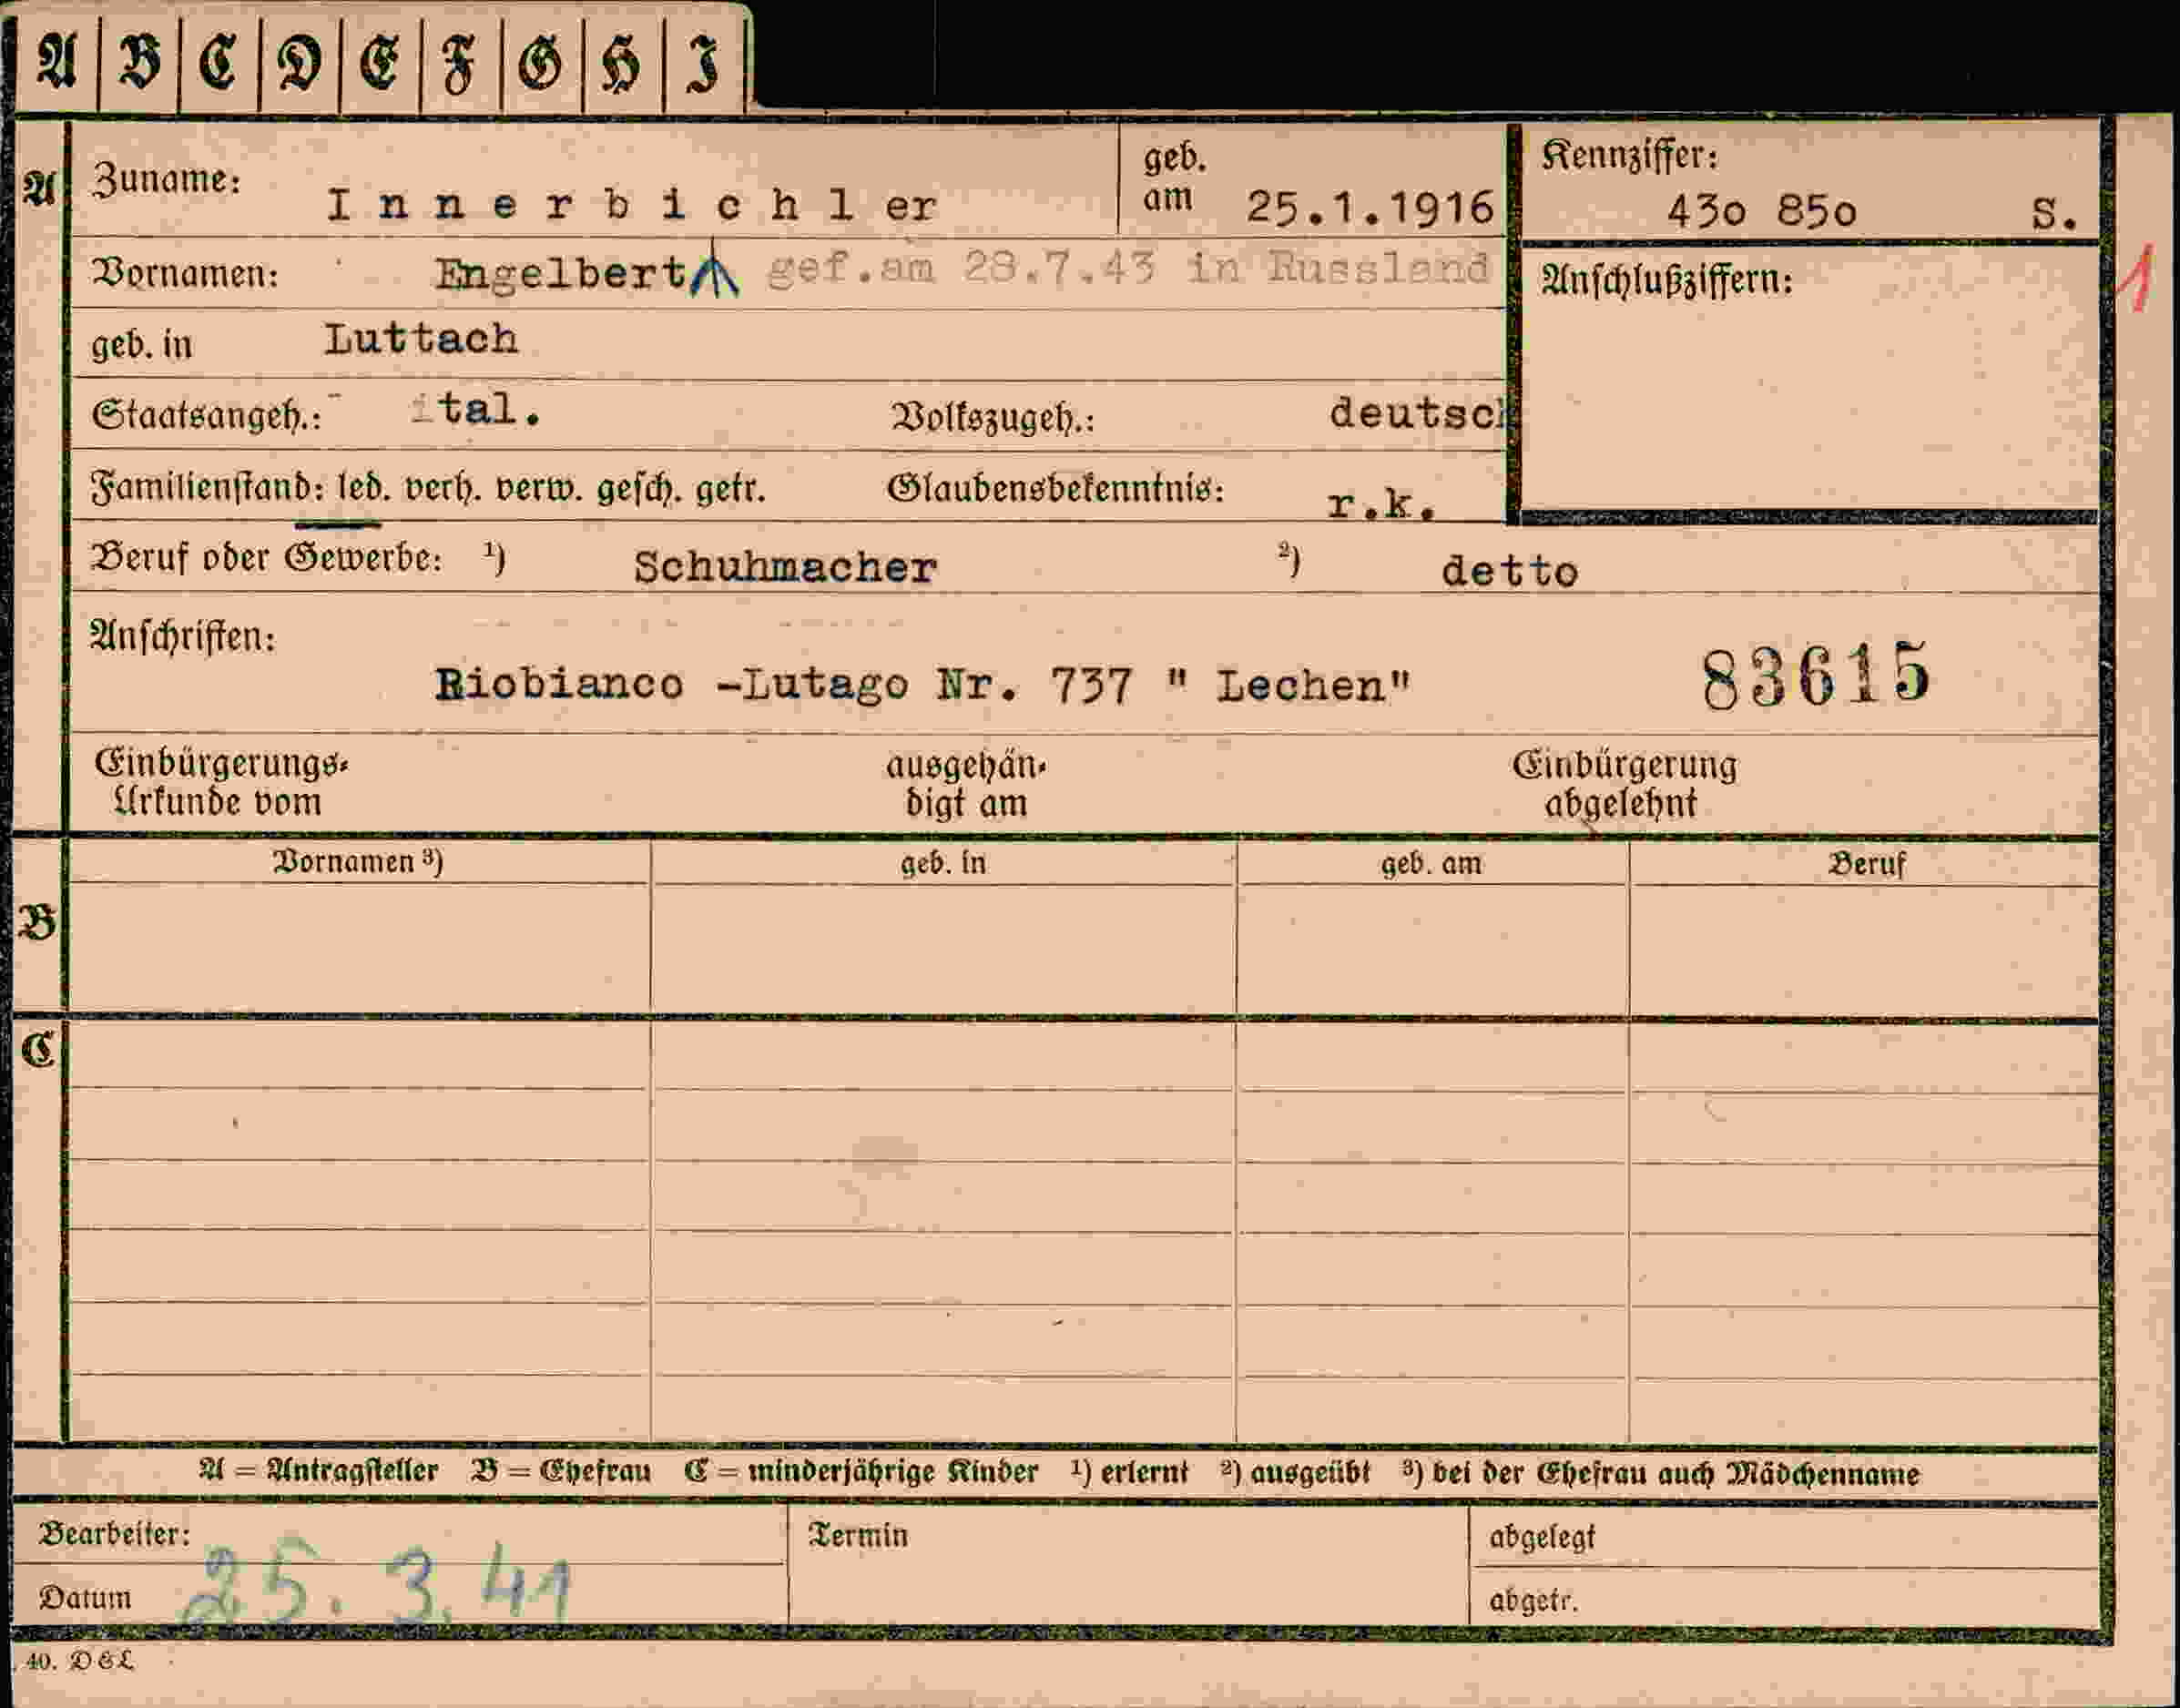 A B C D E F G H I
A Zuname: Innerbichler geb. am 25.1.1916 Kennziffer: 430 850 S.
Vornamen: Engelbert gef.am 28.7.43 in Russland Anschlußziffern: 1
geb. in Luttach
Staatsangeh.: ital. Volkszugeh.: deutsch
Familienstand: led. verh. verw. gesch. getr. Glaubensbekenntnis: r.k.
Beruf oder Gewerbe: ¹) Schuhmacher ²) detto
Anschriften:
Riobianco -Lutago Nr. 737 " Lechen" 83615
Einbürgerungs- ausgehän- Einbürgerung
Urkunde vom digt am abgelehnt
Vornamen ³) geb. in geb. am Beruf
B
C
A = Antragsteller B = Ehefrau C = minderjährige Kinder ¹) erlernt ²) ausgeübt ³) bei der Ehefrau auch Mädchenname
Bearbeiter: Termin abgelegt
Datum 25. 3. 41 abgetr.
40. D&L